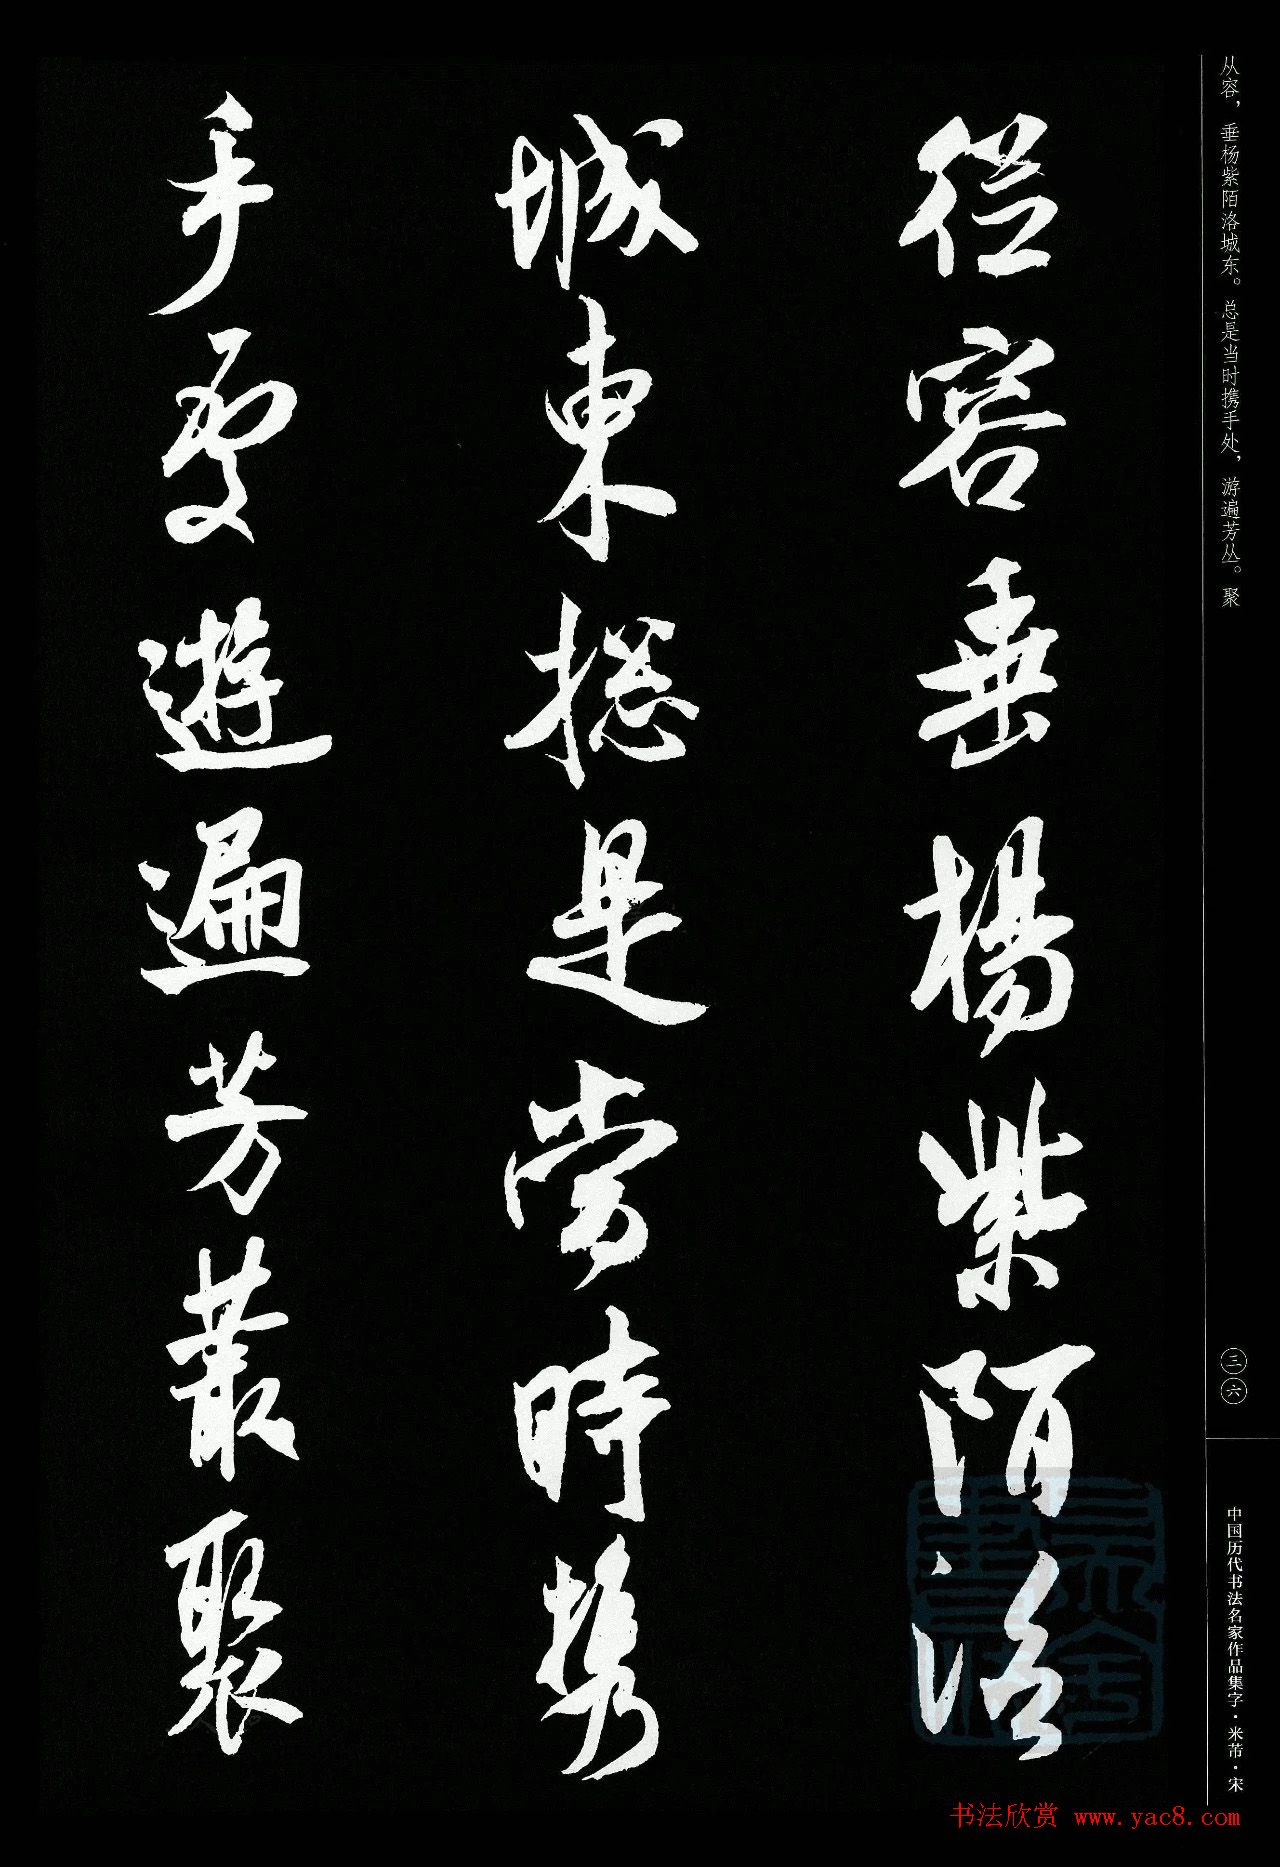 从容，垂杨紫陌洛城东。总是当时携手处，游遍芳丛。聚
從容垂楊紫陌洛
城東揔是當時攜
手處遊遍芳叢聚
三六
中国历代书法名家作品集字·米芾·宋
书法欣赏 www.yac8.com